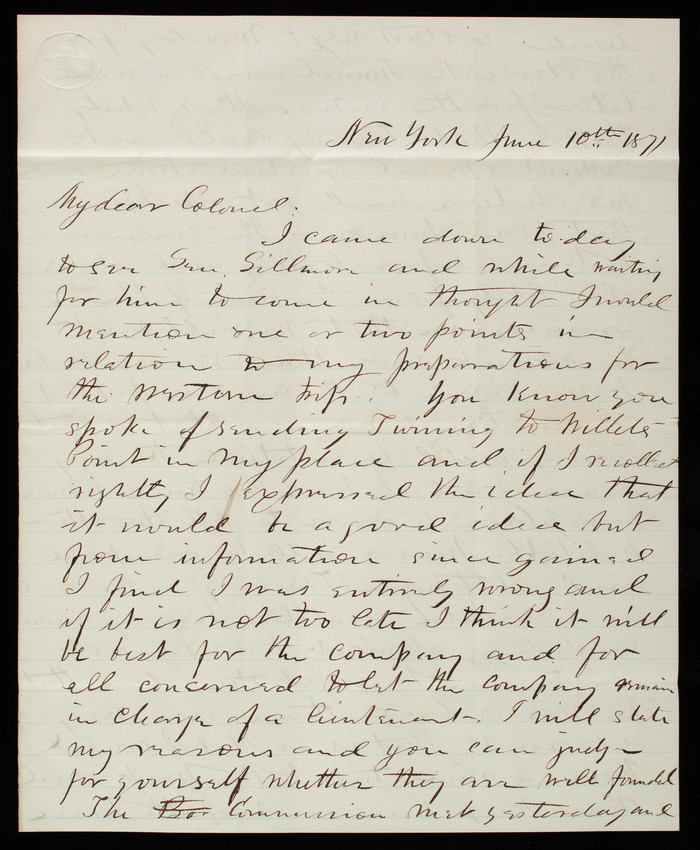 New York June 10th 1871
My dear Colonel.
I came down to-day
to see Gen. Gillmore and while waiting
for him to come in thought I would
mention one or two points in
relation to my preparations for
the western trip. You know you
spoke of sending Twining to Willets
Point in my place and if I recollect
rightly I expressed the idea that
it would be a good idea but
from information since gained
I find I was entirely wrong and
if it is not too late I think it will
be best for the company and for
all concerned to let the company remain
in charge of a lieutenant. I will state
my reasons and you can judge
for yourself whether they are well founded
The Bo Commission met yesterday and